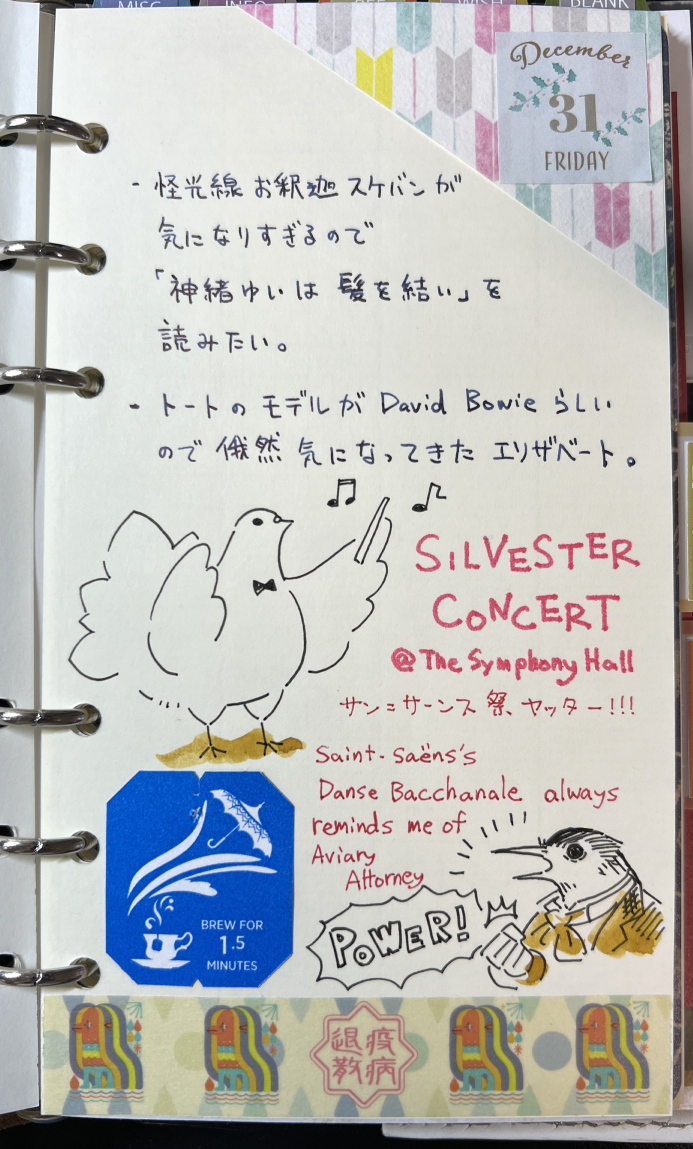 MISC
INFO
WISH
BLANK
December
31
FRIDAY
- 怪光線お釈迦スケバンが
気になりすぎるので
「神緒ゆいは髪を結い」を
読みたい。
- トートのモデルが David Bowie らしい
ので俄然気になってきたエリザベート。
SILVESTER
CONCERT
@ The Symphony Hall
サン=サーンス祭、ヤッター!!!
Saint-Saëns's
Danse Bacchanale always
reminds me of
Aviary
Attorney
POWER!
BREW FOR
1.5
MINUTES
疫病
退散